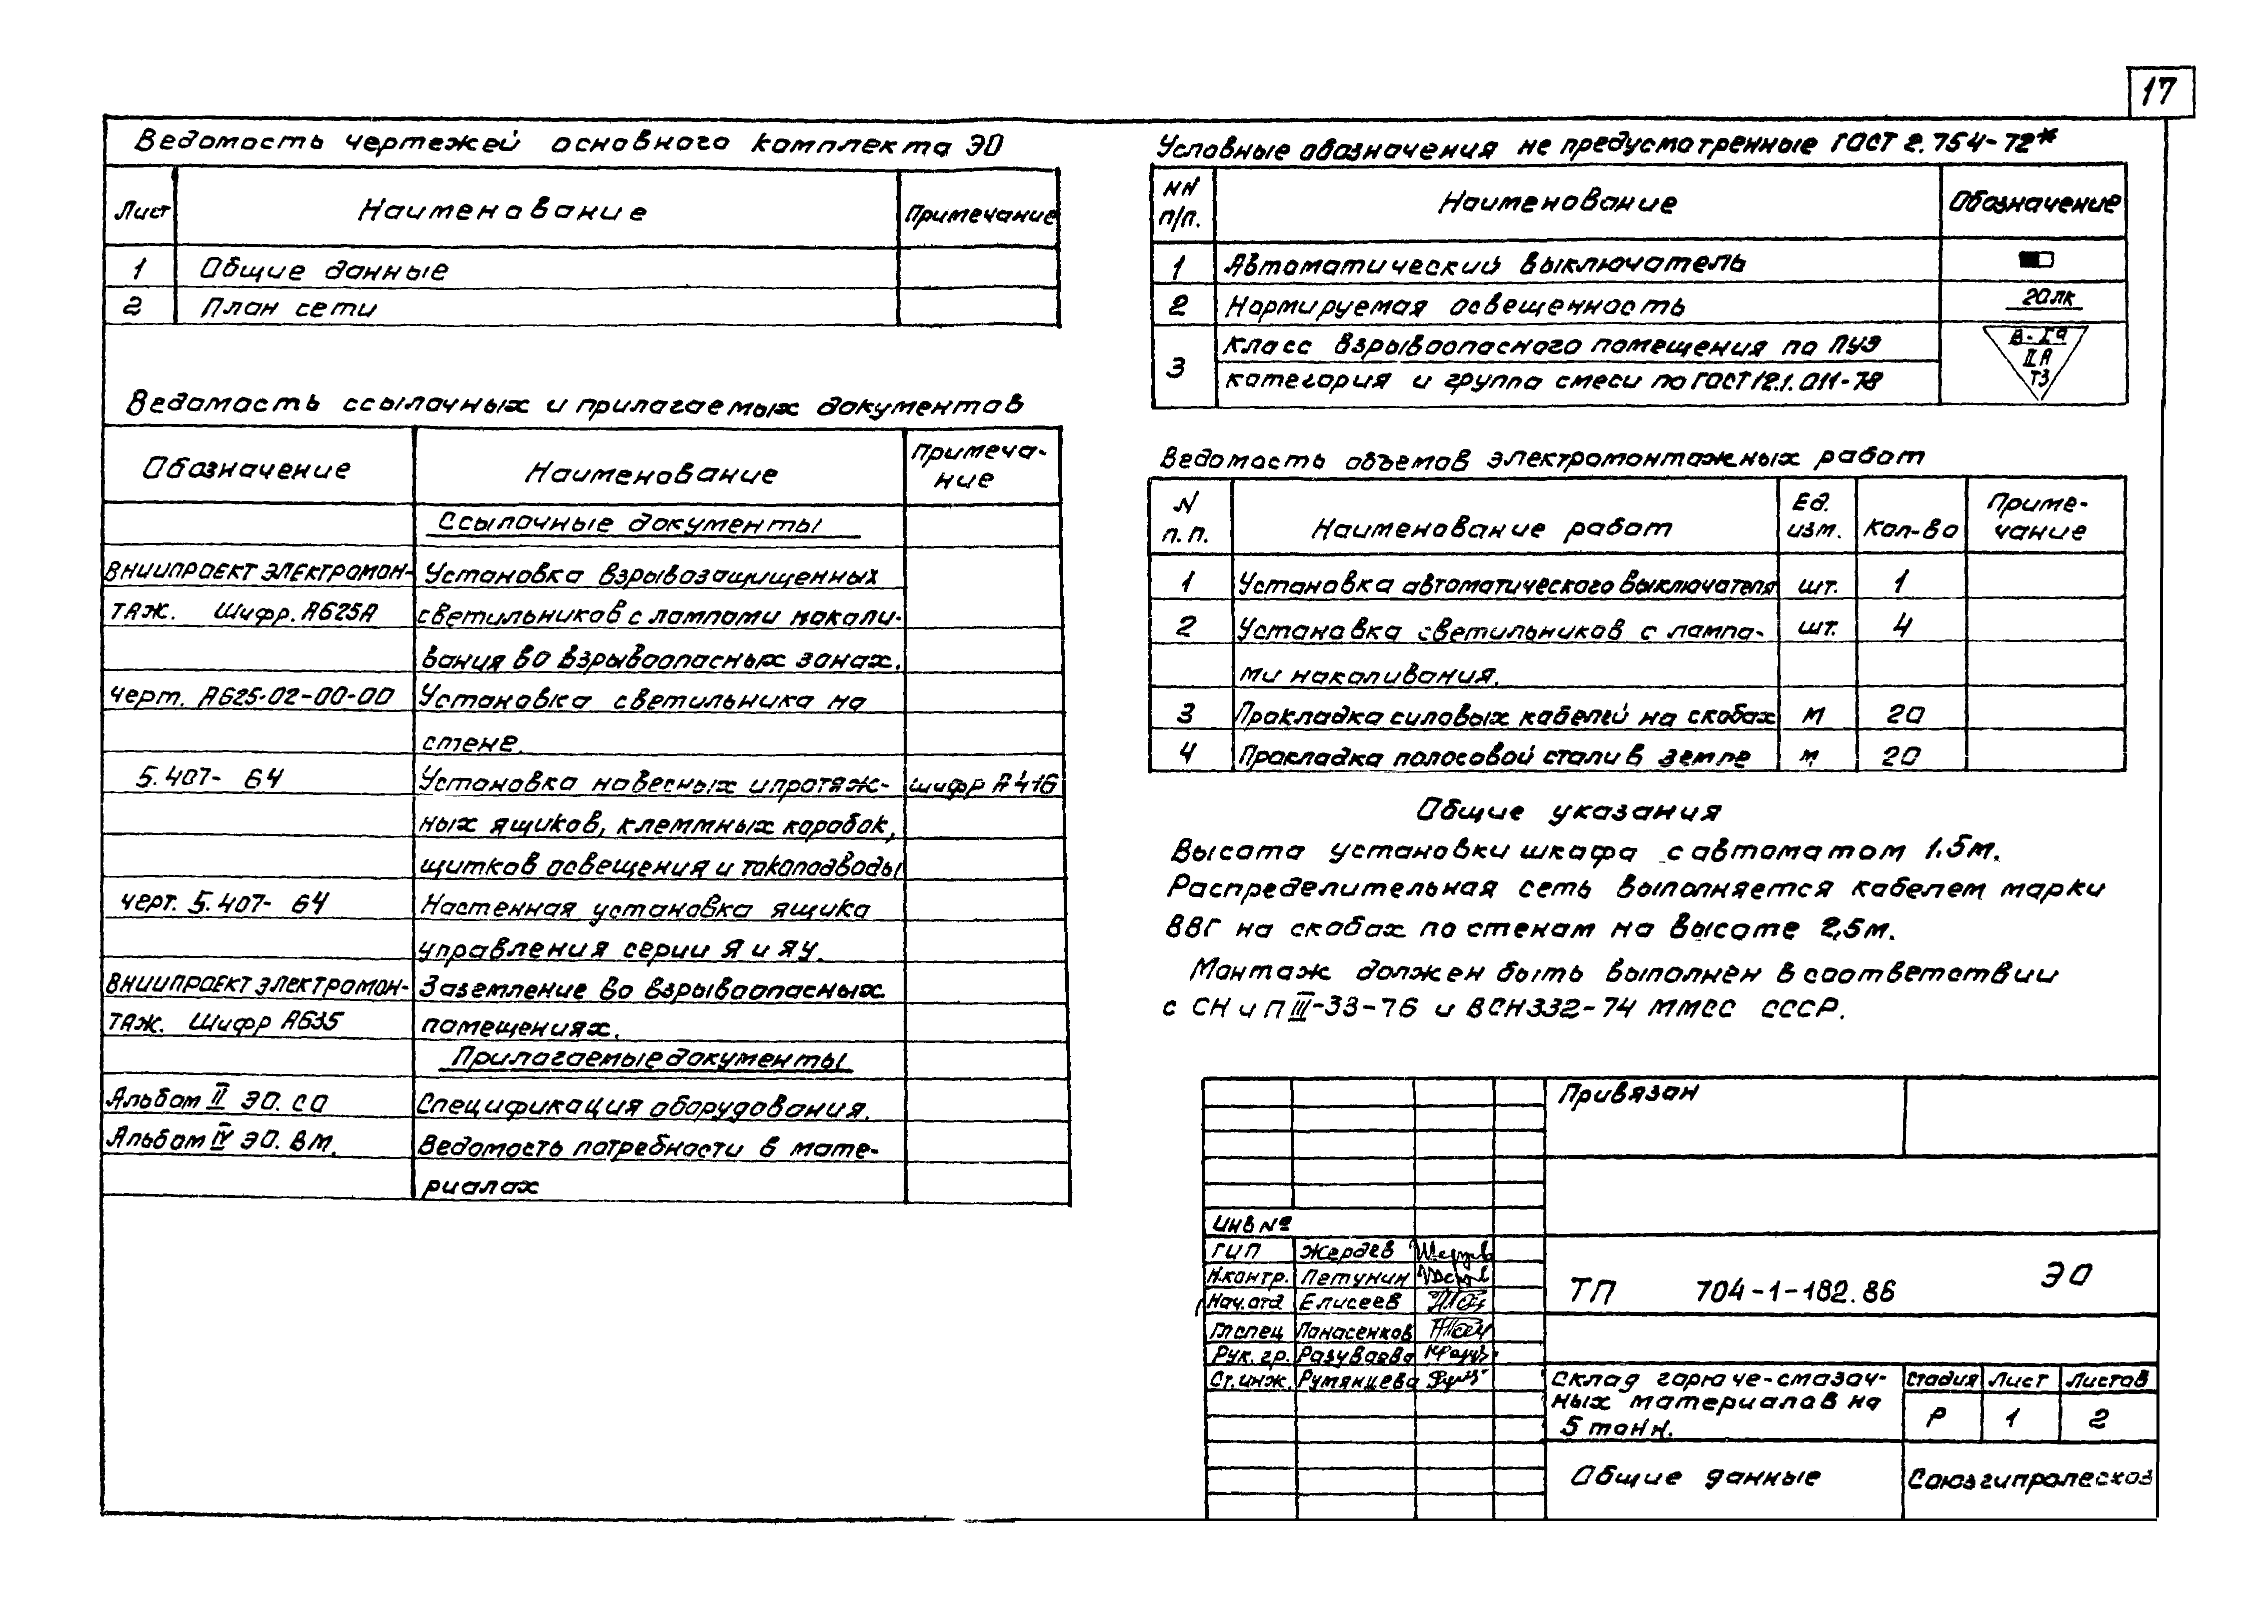 17
Ведомость чертежей основного комплекта ЭО
Лист Наименование Примечание
1 Общие данные
2 План сети
Ведомость ссылочных и прилагаемых документов
Обозначение Наименование Примеча-
ние
Ссылочные документы
ВНИИПРОЕКТ ЭЛЕКТРОМОН- Установка взрывозащищенных
ТАЖ. Шифр. А625А светильников с лампами накали-
вания во взрывоопасных зонах.
черт. А625-02-00-00 Установка светильника на
стене.
5.407- 64 Установка навесных и протяж- шифр А416
ных ящиков, клеммных коробок,
щитков освещения и токоподводы
черт. 5.407- 64 Настенная установка ящика
управления серии Я и ЯУ.
ВНИИПРОЕКТ ЭЛЕКТРОМОН- Заземление во взрывоопасных
ТАЖ. Шифр А635 помещениях.
Прилагаемые документы
Альбом II ЭО. СО Спецификация оборудования.
Альбом IV ЭО. ВМ. Ведомость потребности в мате-
риалах
Условные обозначения не предусмотренные ГОСТ 2.754-72*
NN
п/п. Наименование Обозначение
1 Автоматический выключатель
2 Нормируемая освещенность 20лк
3 Класс взрывоопасного помещения по ПУЭ
категория и группа смеси по ГОСТ 12.1.011-78
В-Iа
IIА
Т3
Ведомость объемов электромонтажных работ
N
п.п. Наименование работ Ед.
изм. Кол-во Приме-
чание
1 Установка автоматического выключателя шт. 1
2 Установка светильников с лампа- шт. 4
ми накаливания.
3 Прокладка силовых кабелей на скобах м 20
4 Прокладка полосовой стали в земле м 20
Общие указания
Высота установки шкафа с автоматом 1.5м.
Распределительная сеть выполняется кабелем марки
ВВГ на скобах по стенам на высоте 2,5м.
Монтаж должен быть выполнен в соответствии
с СН и П III-33-76 и ВСН332-74 ММСС СССР.
Привязан
Инв №
ГИП Жердев
Н.контр. Петунин
Нач.отд Елисеев
Гл спец Панасенков
Рук. гр. Разуваева
Ст.инж. Румянцева
ТП 704-1-182.86 ЭО
Склад горюче-смазоч-
ных материалов на
5 тонн.
Стадия Лист Листов
Р 1 2
Общие данные
Союзгипролесхоз